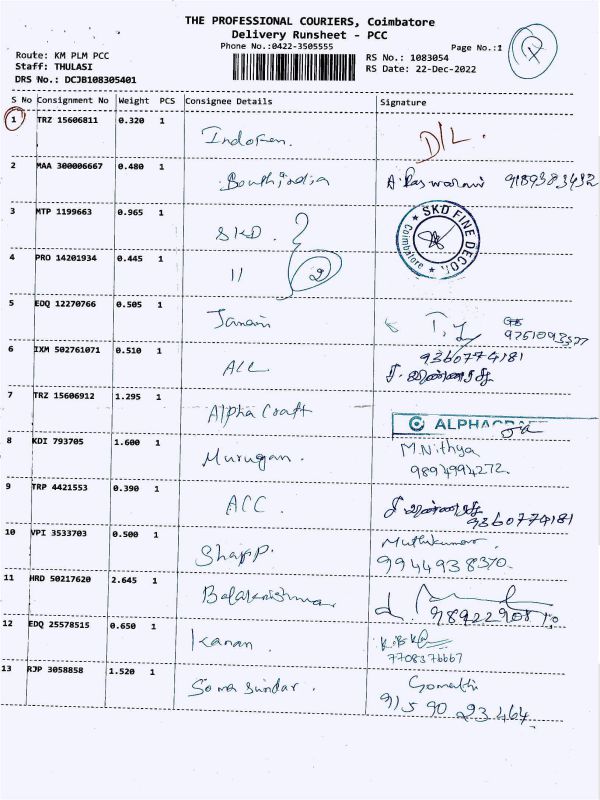 THE PROFESSIONAL COURIERS, Coimbatore
Delivery Runsheet - PCC
Phone No.:0422-3505555
Page No.:1
Route: KM PLM PCC
Staff: THULASI
DRS No.: DCJB108305401
RS No.: 1083054
RS Date: 22-Dec-2022
S No Consignment No Weight PCS Consignee Details Signature
1 TRZ 15606811 0.320 1 Indofen. D/L.
2 MAA 300006667 0.480 1 South india 9189383432
3 MTP 1199663 0.965 1 SKD. SKD FINE DECOR Coimbatore
4 PRO 14201934 0.445 1 11 2
5 EDQ 12270766 0.505 1 Janani
6 IXM 502761071 0.510 1 ALL 9360774181
7 TRZ 15606912 1.295 1 Alpha Craft ALPHACRAFT
8 KDI 793705 1.600 1 Murugan. M.Nithya
9894994272.
9 TRP 4421553 0.390 1 ACC. 9360774181
10 VPI 3533703 0.500 1 Sharp. Muthukumar.
9944938370.
11 HRD 50217620 2.645 1 Balakrishnan
12 EDQ 25578515 0.650 1 Kanan.
7708376667
13 RJP 3058858 1.520 1 Soma Sundar. Gomathi
91590 23464.